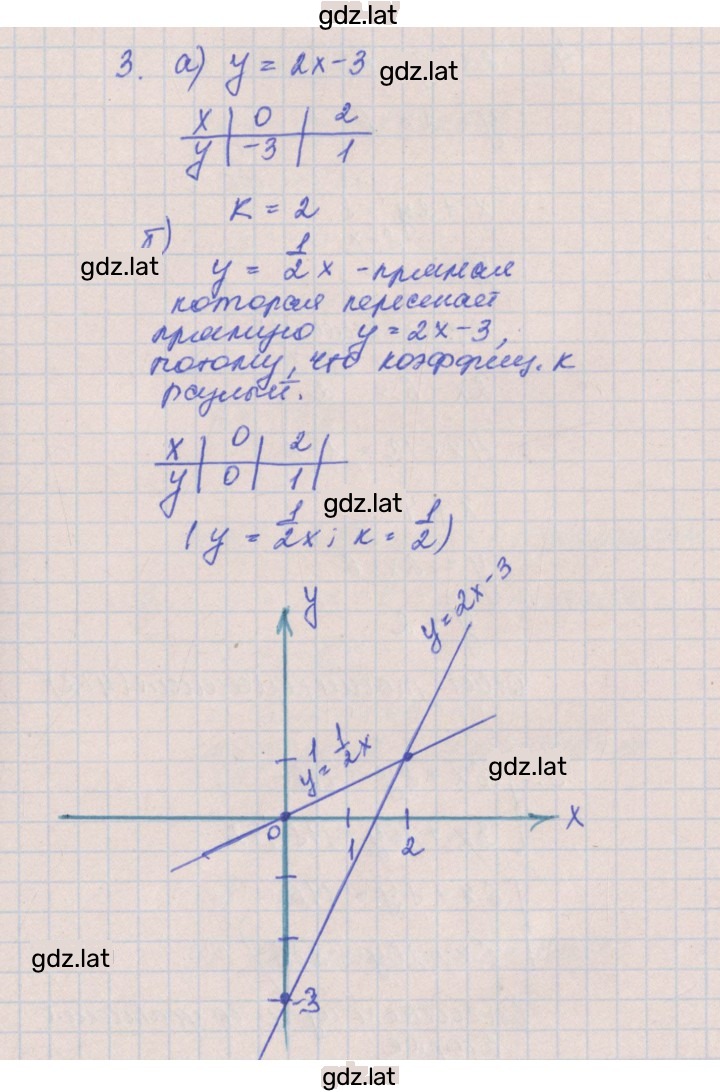 gdz.lat
3. а) y = 2x - 3
gdz.lat
x | 0 | 2
y | -3 | 1
к = 2
б)
gdz.lat
y = 1/2 x - прямая
которая пересекает
прямую y = 2x - 3,
потому, что коэффиц. к
разный.
x | 0 | 2 |
y | 0 | 1 |
gdz.lat
( y = 1/2 x; к = 1/2 )
y
y = 2x - 3
1
y = 1/2 x
gdz.lat
x
0
1
2
gdz.lat
-3
gdz.lat